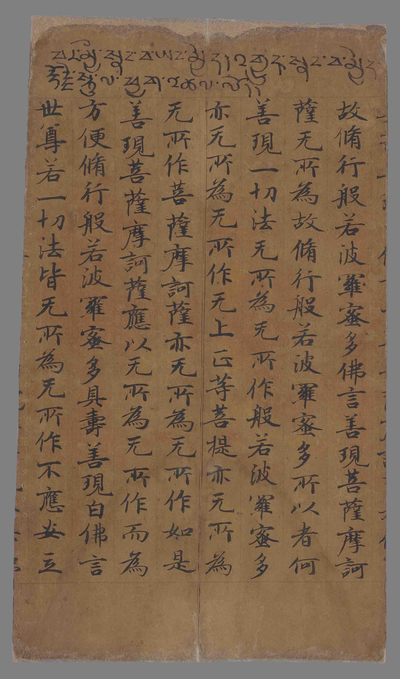 故脩行般若波羅蜜多佛言善現菩薩摩訶
薩无所為故脩行般若波羅蜜多所以者何
善現一切法无所為无所作般若波羅蜜多
亦无所為无所作无上正等菩提亦无所為
无所作菩薩摩訶薩亦无所為无所作如是
善現菩薩摩訶薩應以无所為无所作而為
方便脩行般若波羅蜜多具壽善現白佛言
世尊若一切法皆无所為无所作不應安立